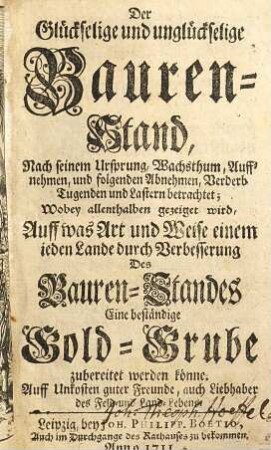 Der
Glückselige und unglückselige
Bauren-
Stand,
Nach seinem Ursprung, Wachsthum, Auff-
nehmen, und folgenden Abnehmen, Verderb
Tugenden und Lastern betrachtet;
Wobey allenthalben gezeiget wird,
Auff was Art und Weise einem
jeden Lande durch Verbesserung
Des
Bauren-Standes
Eine beständige
Gold-Grube
zubereitet werden könne.
Auff Unkosten guter Freunde, auch Liebhaber
des Feld- und Land-Lebens.
Joh. Theoph.
Leipzig, bey JOH. PHILIPP. BOETIO,
Auch im Durchgange des Rathauses zu bekommen.
Anno 1711.